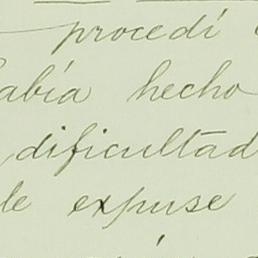 procedí
abía hecho
dificultad
le expuse